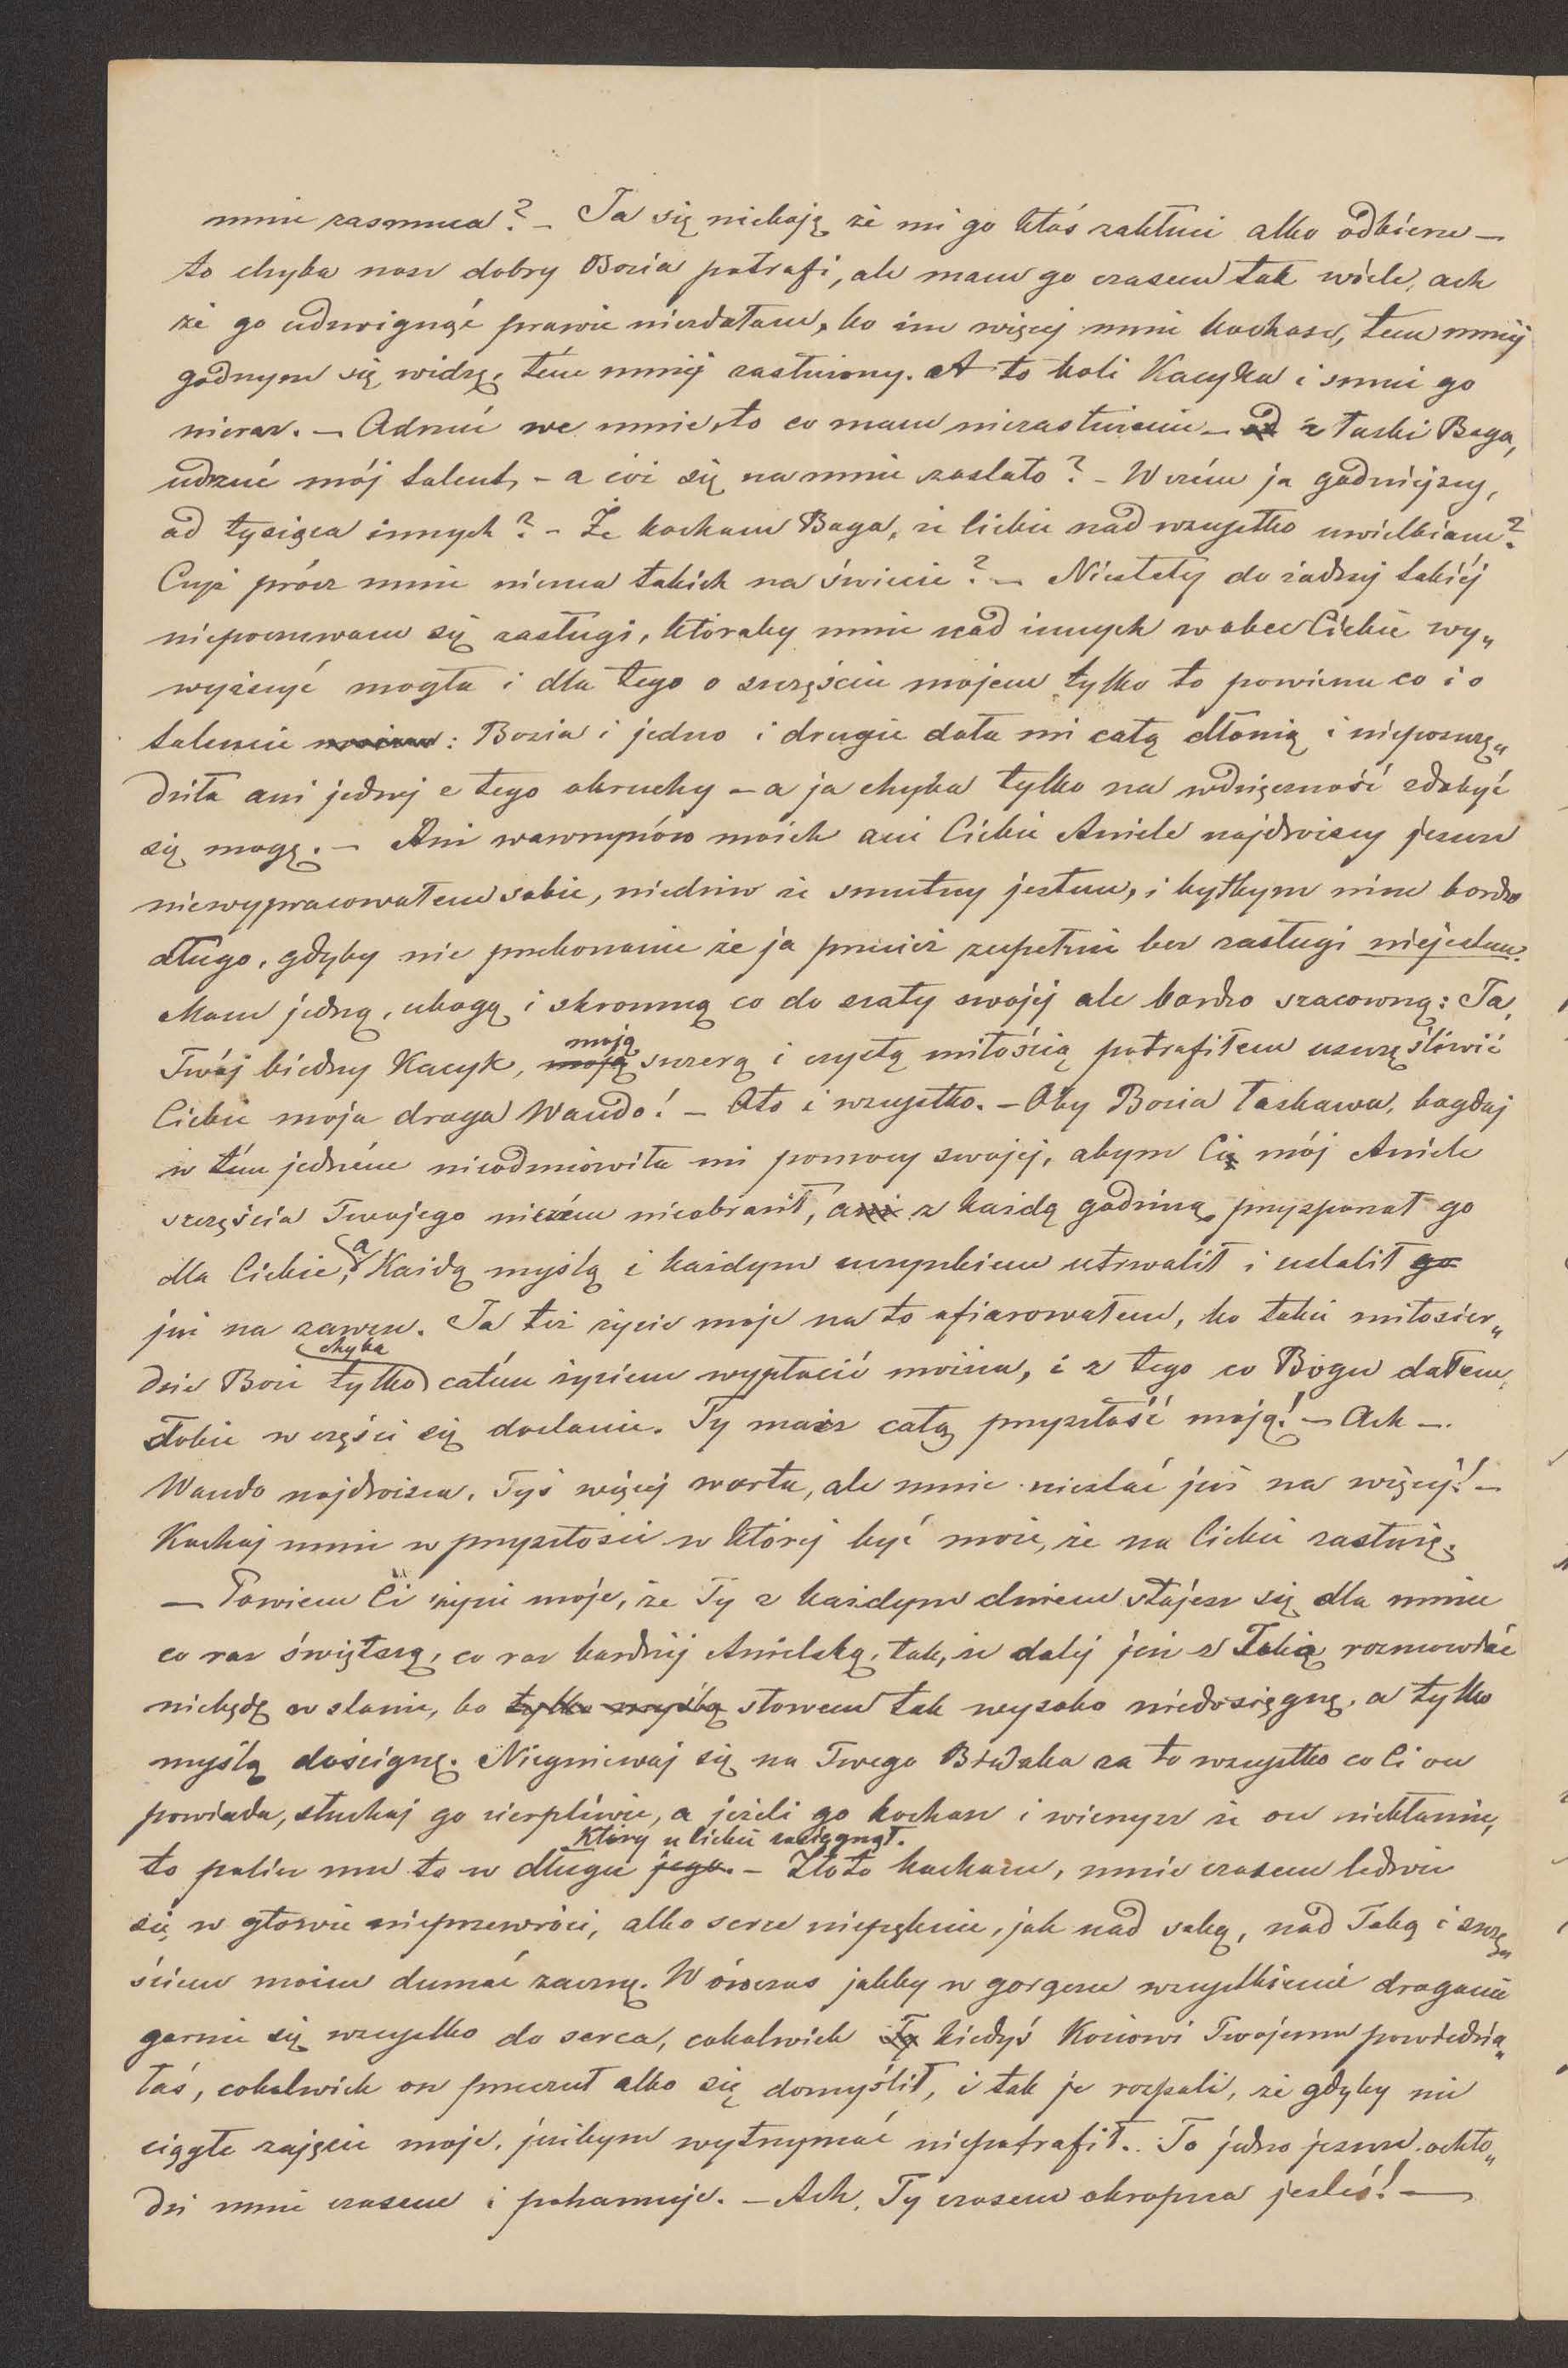 mnie zasmuca? – Ja się nieboję że mi go ktoś zakłuci albo odbierze –
to chyba nasz dobry Bozia potrafi, ale mam go czasem tak wiele, ach
że go udźwignąć prawie niezdołam, bo im więcej mnie kochasz, tem mniej
godnym się widzę, tém mniej zasłużony. A to boli Kacyka i smuci go
nieraz. – Odrzuć we mnie, to co mam niezasłużenie – z łaski Boga,
odrzuć mój talent, – a cóż się na mnie zostało? – W czém ja godniejszy,
od tysiąca innych? – Że kocham Boga, że Ciebie nad wszystko uwielbiam?
Czyż prócz mnie niema takich na świecie? – Niestety do żadnej takiéj
niepoczuwam się zasługi, któraby mnie nad innych wobec Ciebie wy„
wyższyć mogła i dla tego o szczęściu mojem tylko to powiem co i o
talencie: Bozia i jedno i drugie dała mi całą dłonią i nieposzczę„
dziła ani jednej z tego okruchy – a ja chyba tylko na wdzięczność zdobyć
się mogę. – Ani wawrzynów moich ani Ciebie Aniele najdroższy jeszcze
niewypracowałem sobie, niedziw że smutny jestem, i byłbym nim bardzo
długo, gdyby nie przekonanie że ja przecież zupełnie bez zasługi niejestem.
Mam jedną, ubogą i skromną co do szaty swojej ale bardzo szacowną: Ja,
Twój biedny Kacyk, moją szczerą i czystą miłością potrafiłem uszczęśliwić
Ciebie moja droga Wando! – Oto i wszystko. – Oby Bozia łaskawa, bogdaj
w tém jedném nieodmówiła mi pomocy swojej, abym Ci mój Aniele
szczęścia Twojego niczém nieobraził, a z każdą godziną przysporzał go
dla Ciebie, a Każdą myślą i każdym uczynkiem utrwalił i ustalił
już na zawsze. Ja też życie moje na to ofiarowałem, bo takie miłosier„
dzie Boże chyba tylko całém życiem wypłacić można, i z tego co Bogu dałem,
Tobie w części się dostanie. Ty masz całą przyszłość moją! – Ach –.
Wando najdroższa, Tyś więcej warta, ale mnie niestać już na więcéj! –
Kochaj mnie w przyszłości w której być może, że na Ciebie zasłużę.
– Powiem Ci życie moje, że Ty z każdym dniem stajesz się dla mnie
co raz świętszą, co raz bardziej Anielską, tak, że dalej już z Tobią rozmawiać
niebędę w stanie, bo słowem tak wysoko niedosięgnę, a tylko
myślą doścignę. Niegniewaj się na Twego Biedaka za to wszystko co Ci on
powiada, słuchaj go cierpliwie, a jeżeli go kochasz i wierzysz że on niekłamie,
to policz mu to w długu który u Ciebie zaciągnął. – Złoto kochane, mnie czasem ledwie
się w głowie nieprzewróci, albo serce niepęknie, jak nad sobą, nad Tobą i szczę„
ściem moim dumać zacznę. Wówczas jakby w gorączce wszystkiemi drogami
garnie się wszystko do serca, cokolwiek kiedyś Kociowi Twojemu powiedzia„
łaś, cokolwiek on przeczuł albo się domyślił, i tak je rozpali, że gdyby nie
ciągłe zajęcie moje, jużbym wytrzymać niepotrafił. To jedno jeszcze ochło„
dzi mnie czasem i pohamuje. – Ach, Ty czasem okropna jesteś! –